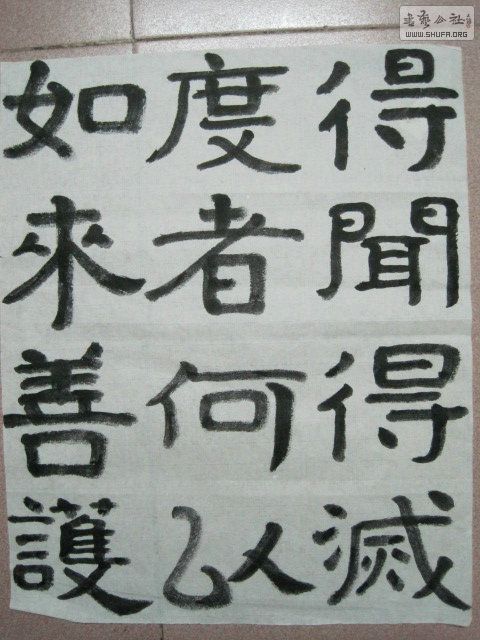 得聞得滅
度者何以
如來善護
书艺公社
WWW.SHUFA.ORG